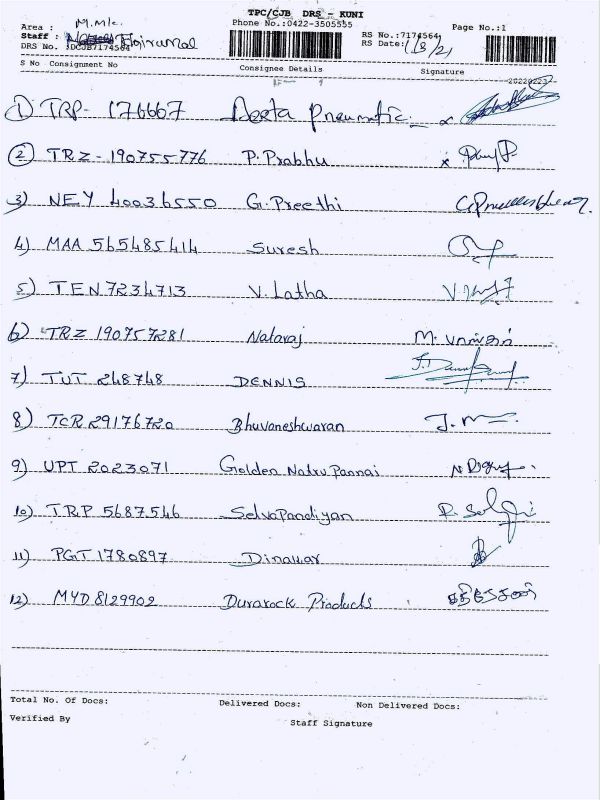 TPC/CJB DRS - KUNI
Area : M.Mlc. Phone No.:0422-3505555 Page No.:1
Staff : RS No.:7174564
DRS No. :DCJB7174564 RS Date: 1/8/21
S No Consignment No Consignee Details Signature
20220223
1) TRP- 176667 Deeta Pneumatic
2) TRZ - 190755776 P. Prabhu
3) NEY 40036550 G. Preethi
4) MAA 565485414 Suresh
5) TEN 7234713 V. Latha
6) TRZ 190757281 Nataraj M.
7) TUT 248748 DENNIS
8) TCR 29176720 Bhuvaneshwaran
9) UPT 2023071 Golden Natru Pannai
10) TRP 5687546 Selvapandiyan
11) PGT 1780897 Dinakar
12) MYD 8129902 Durarock Products
Total No. Of Docs: Delivered Docs: Non Delivered Docs:
Verified By Staff Signature